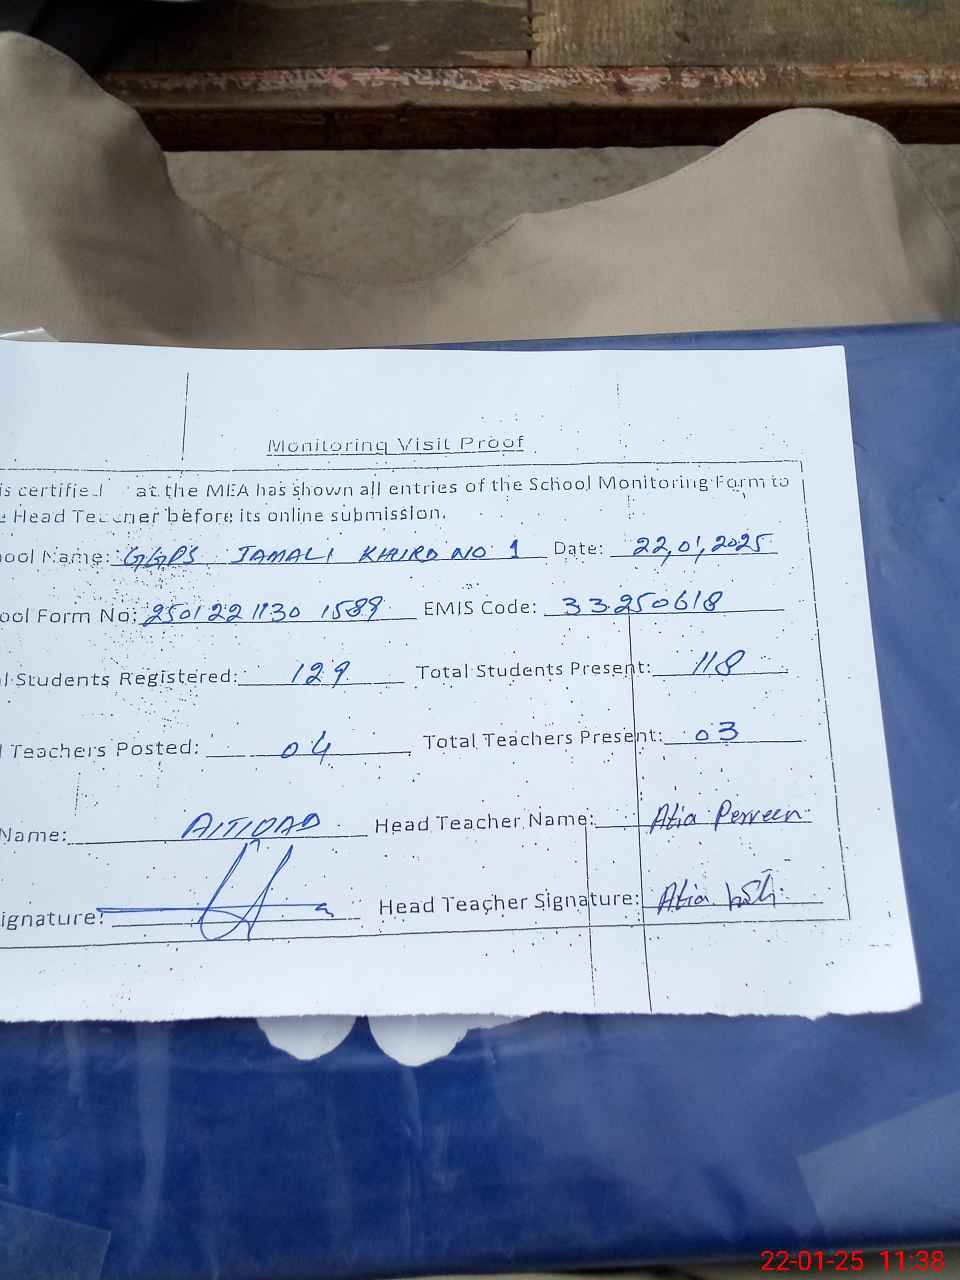 Monitoring Visit Proof
is certified at the MEA has shown all entries of the School Monitoring Form to
e Head Teacher before its online submission.
hool Name: GGPS JAMALI KHAIRO NO 1 Date: 22,01,2025
ool Form No: 2501221130 1589 EMIS Code: 33250618
l Students Registered: 129 Total Students Present: 118
l Teachers Posted: 04 Total Teachers Present: 03
Name: AITIQAD Head Teacher Name: Atia Perveen
ignature: Head Teacher Signature: Atia
22-01-25 11:38